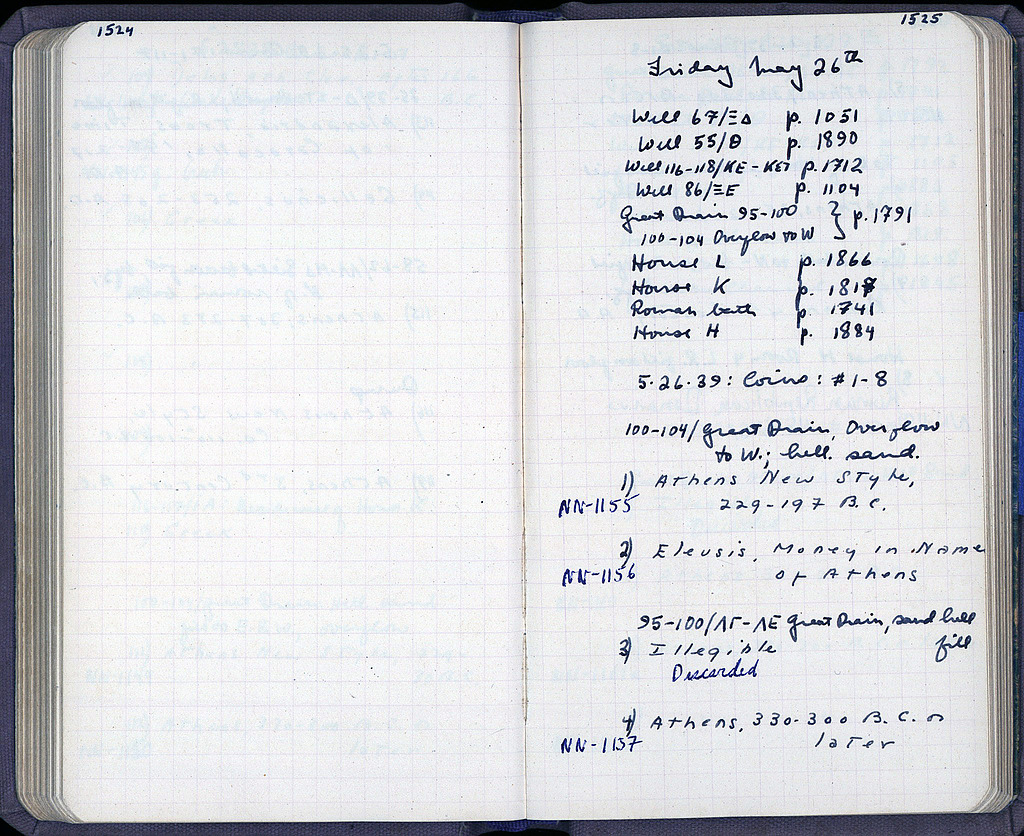 1524
1525
Friday May 26th
Well 67/ΞΔ p. 1051
Well 55/Θ p. 1890
Well 116-118/KE-KΣΤ p. 1712
Well 86/ΞE p. 1104
Great Drain 95-100 } p. 1791
100-104 Overflow to W
House L p. 1866
House K p. 1817
Roman bath p. 1741
House H p. 1884
5.26.39: Coins: #1-8
100-104/Great Drain, Overflow
to W.; hell. sand.
1) Athens New Style,
NN-1155 229-197 B.C.
2) Eleusis, Money in Name
NN-1156 of Athens
95-100/ΛΓ-ΛE Great Drain, sand hell
3) Illegible fill
Discarded
4) Athens, 330-300 B.C. or
NN-1157 later